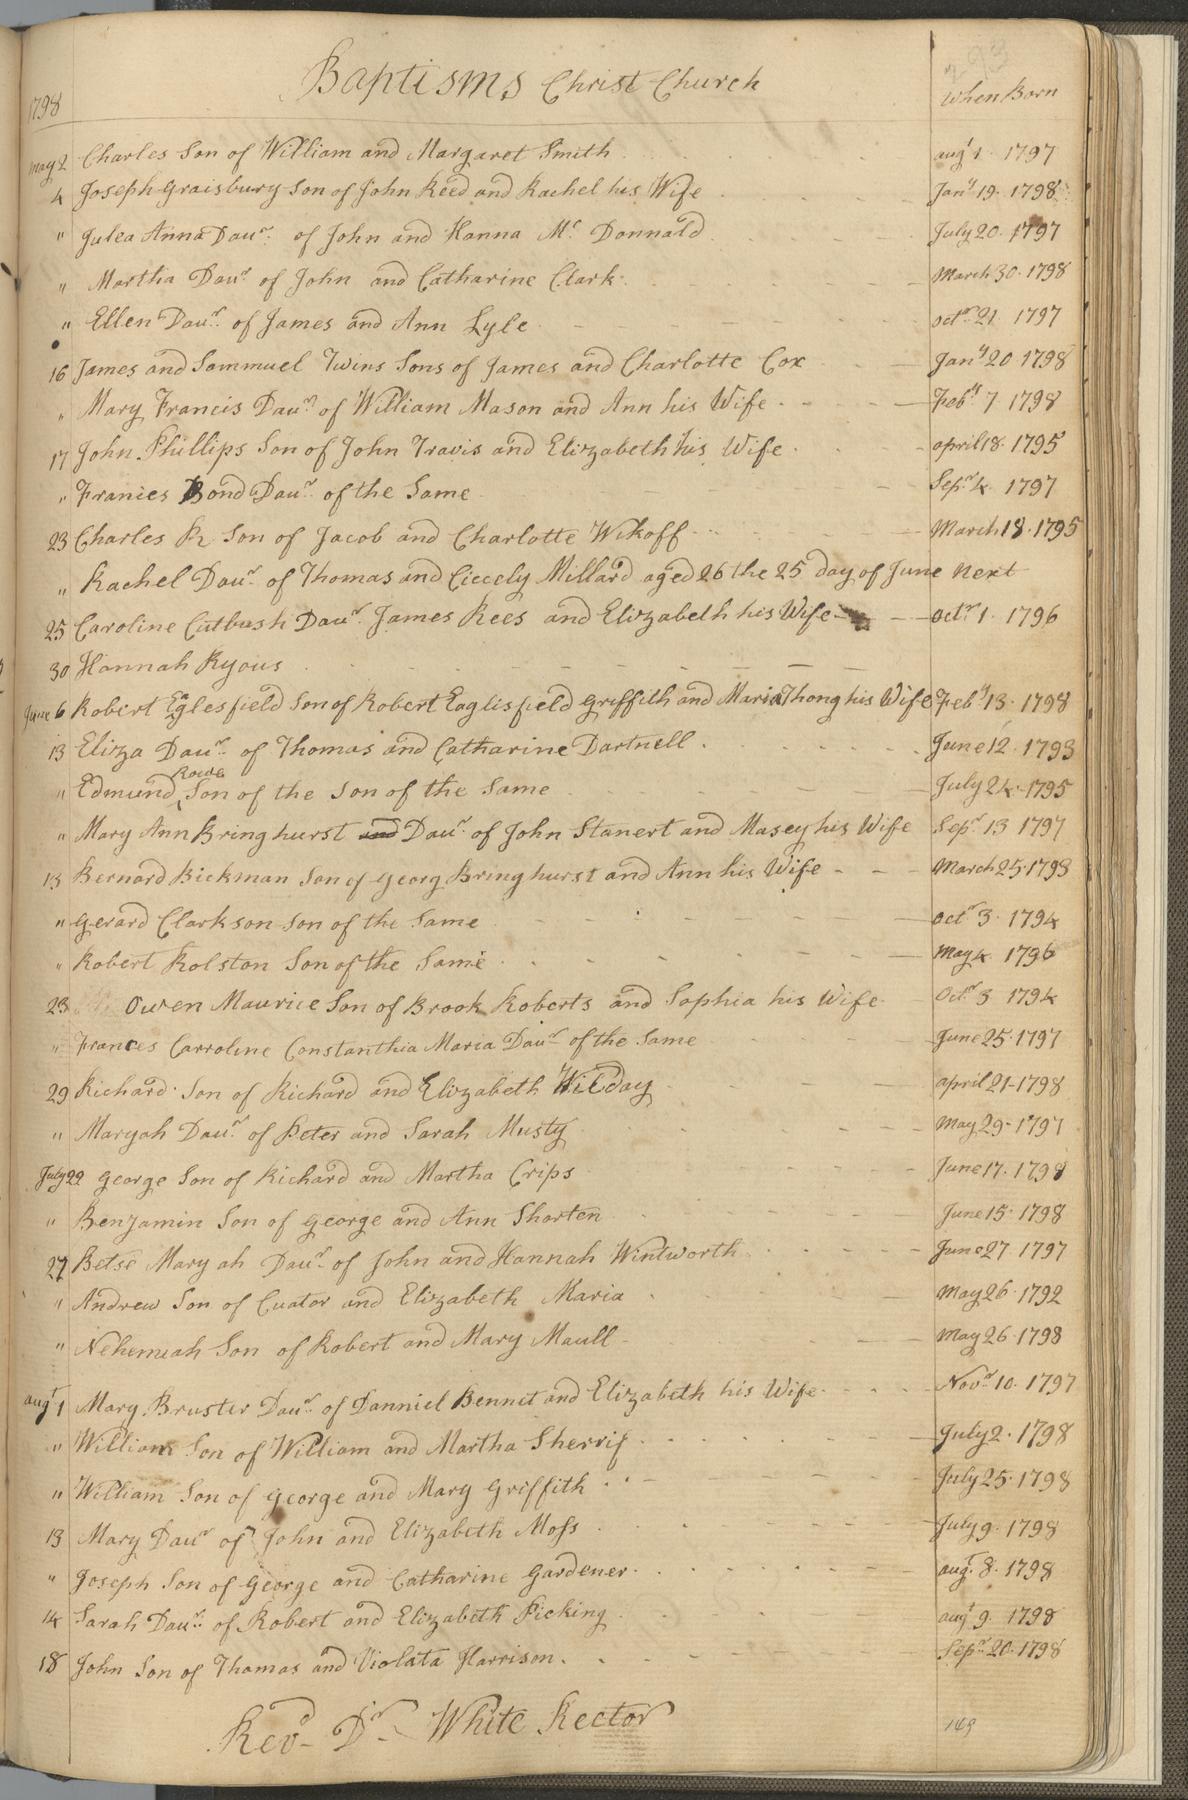 293
Baptisms Christ Church
When Born
1798
May 2 Charles Son of William and Margaret Smith augt 1 1797
4 Joseph Graisbury Son of John Reed and Rachel his Wife Jany 19 1798
" Julea Anna Daur of John and Hanna Mc Donnald July 20 1797
" Martha Daur of John and Catharine Clark March 30 1798
" Ellen Daur of James and Ann Lyle octr 21 1797
16 James and Sammuel Twins Sons of James and Charlotte Cox Jany 20 1798
" Mary Francis Daur of William Mason and Ann his Wife Feby 7 1798
17 John Phillips Son of John Travis and Elizabeth his Wife april 18 1795
" Franies Bond Daur of the Same Sepr 4 1797
23 Charles R Son of Jacob and Charlotte Wikoff March 18 1795
" Rachel Daur of Thomas and Ciecely Millard aged 26 the 25 day of June next
25 Caroline Cutbush Daur James Rees and Elizabeth his Wife Octr 1 1796
30 Hannah Ryous
June 6 Robert Eglesfield Son of Robert Eaglisfield Griffith and Maria Thong his Wife Feby 13 1798
13 Eliza Daur of Thomas and Catharine Dartnell June 12 1793
" Edmund Rowe Son of the Son of the Same July 24 1795
" Mary Ann Bringhurst and Daur of John Stanert and Masey his Wife Sepr 13 1797
13 Bernard Bickman Son of Georg Bringhurst and Ann his Wife March 25 1793
" Gerard Clarkson Son of the Same octr 3 1794
" Robert Rolston Son of the Same May 4 1796
23 Owen Maurice Son of Brook Roberts and Sophia his Wife Octr 3 1794
" Frances Carroline Constanthia Maria Daur of the Same June 25 1797
29 Richard Son of Richard and Elizabeth Wilday april 21 1798
" Maryah Daur of Peter and Sarah Musty May 29 1797
July 22 George Son of Richard and Martha Crips June 17 1798
" Benjamin Son of George and Ann Shorten June 15 1798
27 Betse Maryah Daur of John and Hannah Wintworth June 27 1797
" Andrew Son of Cuator and Elizabeth Maria May 26 1792
" Nehemiah Son of Robert and Mary Maull May 26 1798
augt 1 Mary Bruster Daur of Danniel Bennet and Elizabeth his Wife Novr 10 1797
" William Son of William and Martha Sherrif July 2 1798
" William Son of George and Mary Griffith July 25 1798
13 Mary Daur of John and Elizabeth Moss July 9 1798
" Joseph Son of George and Catharine Gardener augt 8 1798
14 Sarah Daur of Robert and Elizabeth Picking augt 9 1798
18 John Son of Thomas and Violata Harrison Sepr 20 1798
Revd Dr White Rector
149